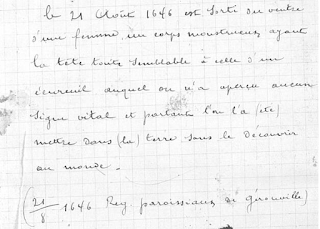 le 21 Août 1646 est sorti du ventre
d'une femme, un corps monstrueux ayant
la tête toute semblable à celle d'un
écureuil auquel on n'a aperçu aucun
signe vital et partant l'on l'a (été)
mettre dans (la) terre sans le découvrir
au monde.
(21/8 1646 Reg paroissiaux de Gironville)